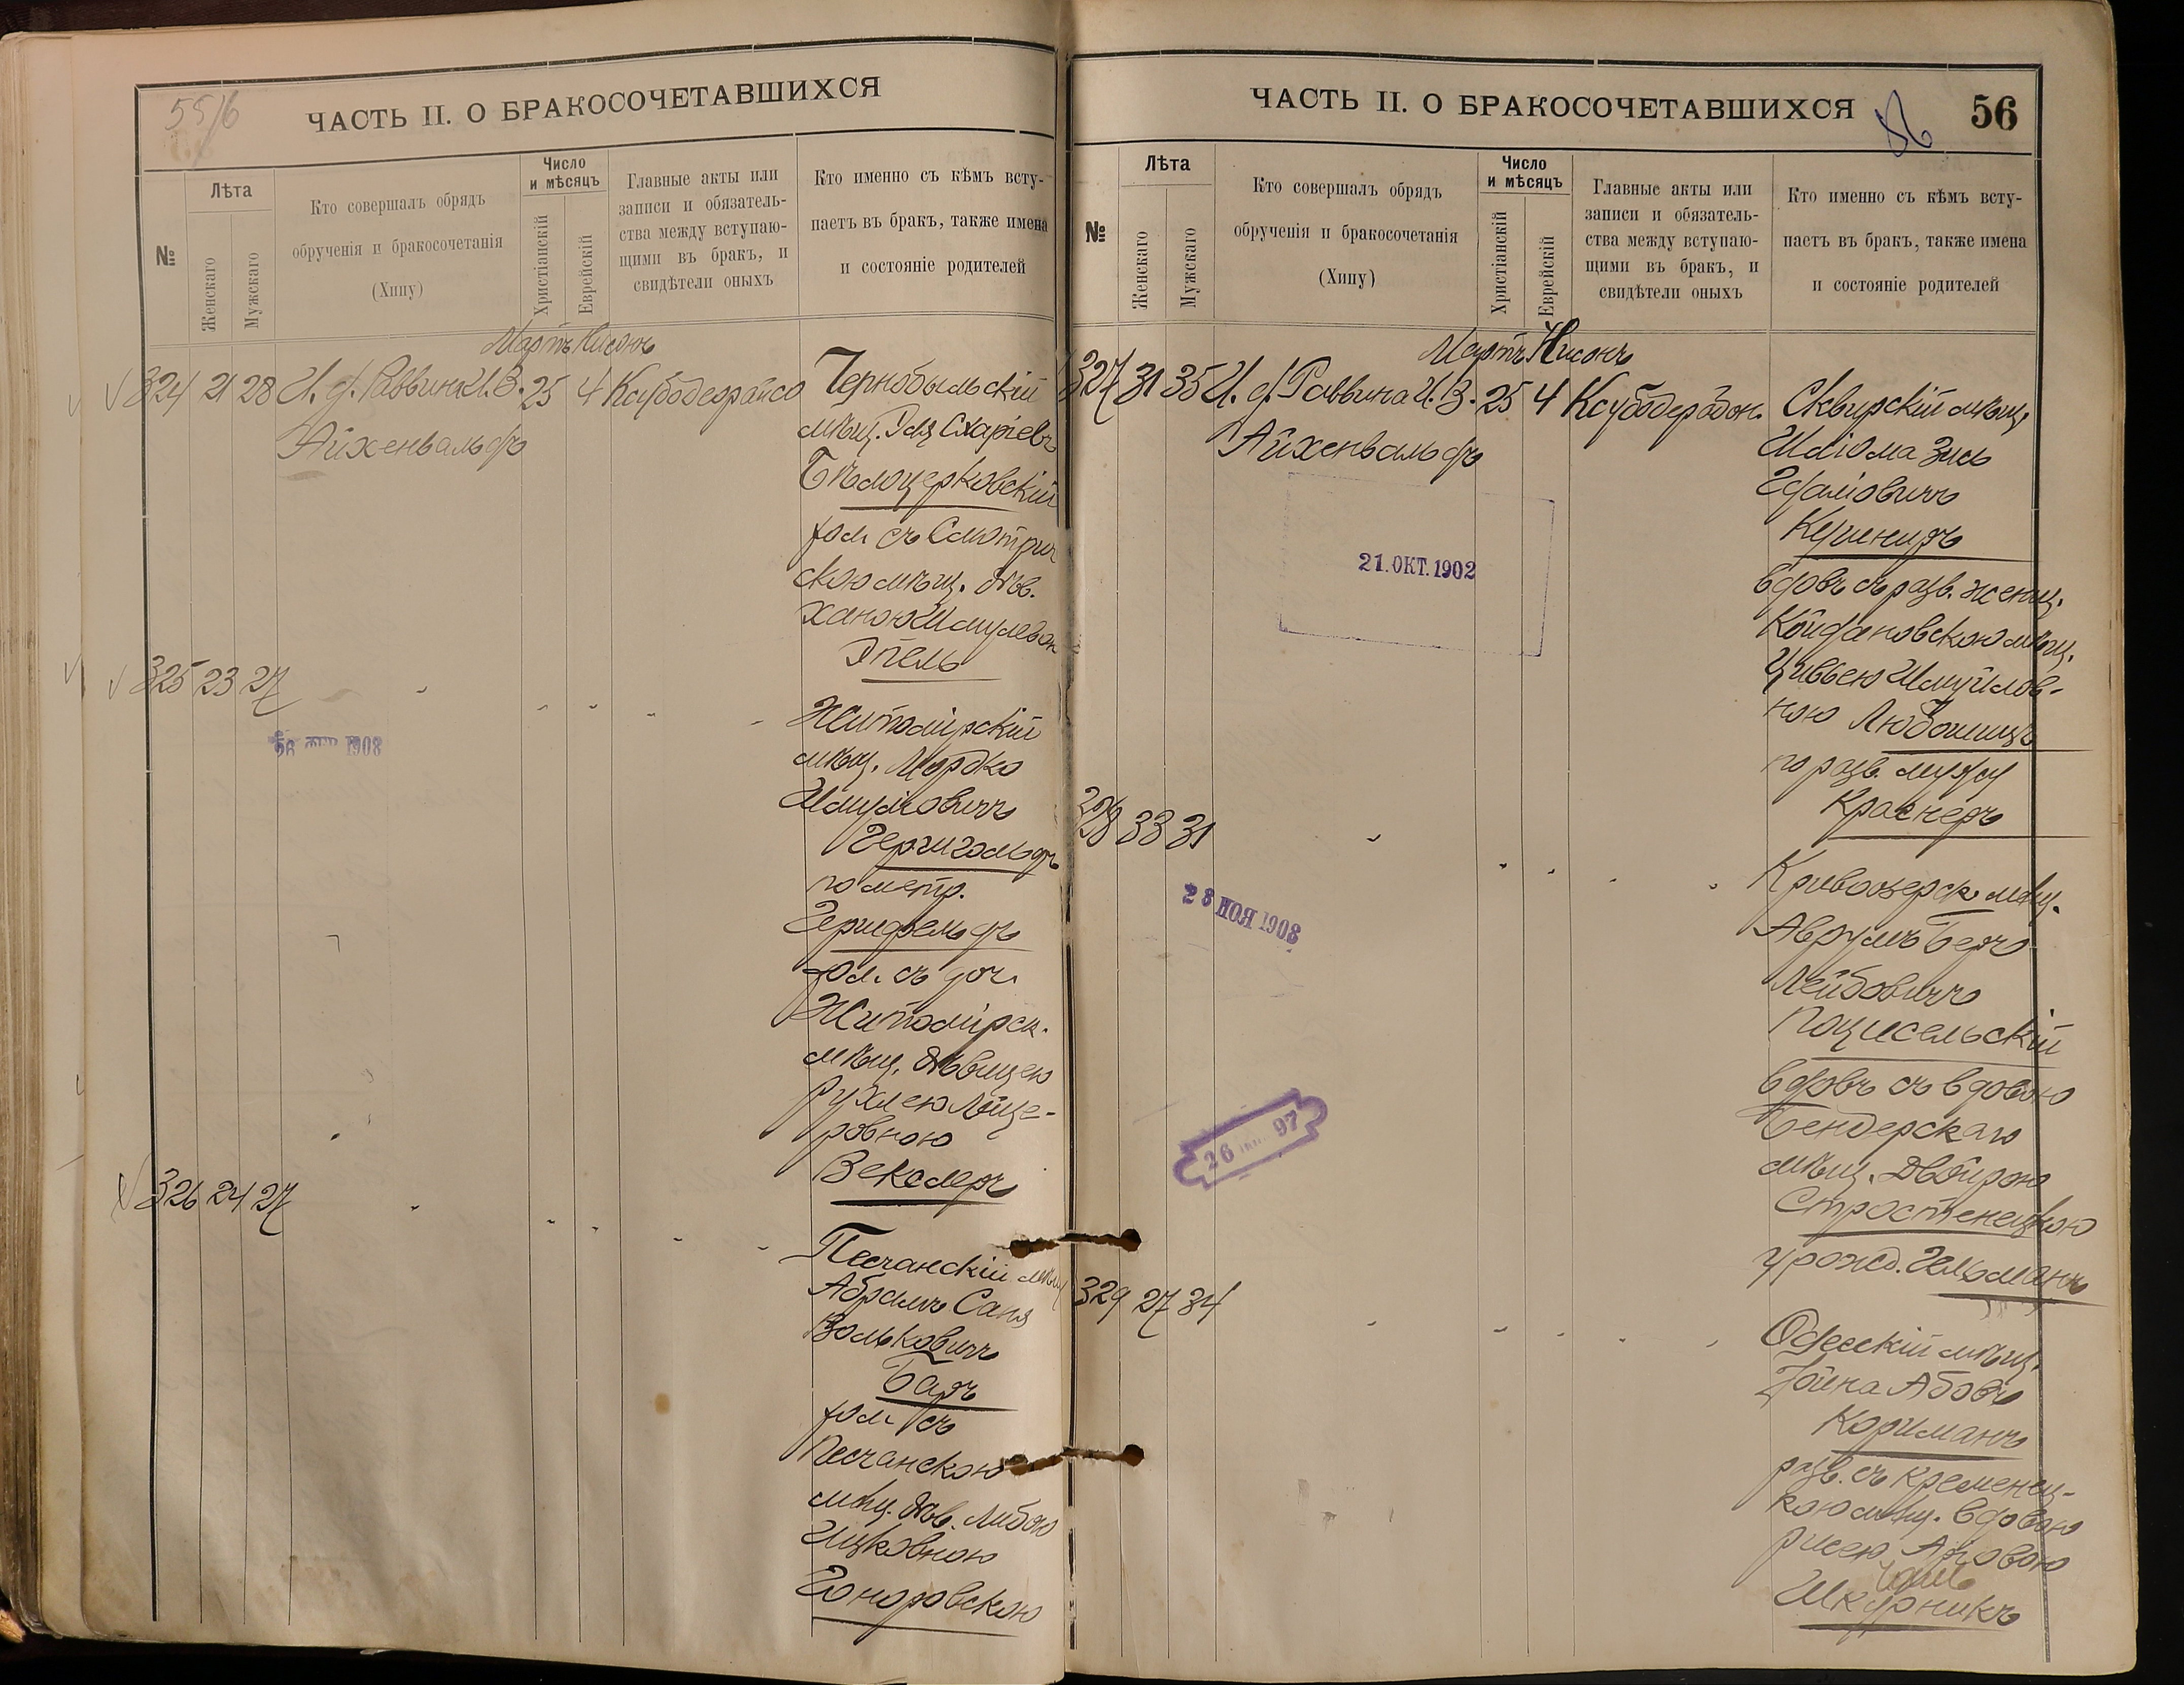 55/6
ЧАСТЬ II. О БРАКОСОЧЕТАВШИХСЯ
№
Лѣта
Женскаго
Мужскаго
Кто совершалъ обрядъ
обрученія и бракосочетанія
(Хипу)
Число
и мѣсяцъ
Христіанскій
Еврейскій
Главные акты или
записи и обязатель-
ства между вступаю-
щими въ бракъ, и
свидѣтели оныхъ
Кто именно съ кѣмъ всту-
паетъ въ бракъ, также имена
и состояніе родителей
Мартъ Нисонъ
324 21 28 И. д. Раввина И. В. 25 4
Айхенвальдъ
Чернобыльскій
мѣщ.
Бѣлоцерковскій
хол. съ Смотрич
скою мѣщ. дѣв.
Ханою Шмулевон
Эпель
325 23 27
1908
Житомірскій
мѣщ. Мордко
Шмулевичъ
по метр.
Гершфельдъ
хол. съ доч.
Житомірск.
мѣщ. дѣвицею
Рухлею Лейзе-
ровною
Векслеръ
326 24 27
Песчанскій мѣщ
Абрамъ Саня
Вольковичъ
Баръ
хол. съ
Песчанскою
мѣщ. дѣв. Либою
Ицковною
Гоноровскою
ЧАСТЬ II. О БРАКОСОЧЕТАВШИХСЯ
56
56
№
Лѣта
Женскаго
Мужскаго
Кто совершалъ обрядъ
обрученія и бракосочетанія
(Хипу)
Число
и мѣсяцъ
Христіанскій
Еврейскій
Главные акты или
записи и обязатель-
ства между вступаю-
щими въ бракъ, и
свидѣтели оныхъ
Кто именно съ кѣмъ всту-
паетъ въ бракъ, также имена
и состояніе родителей
Мартъ Нисонъ
327 31 35 И. д. Раввина И. В. 25 4
Айхенвальдъ
21. ОКТ. 1902
Сквирскій мѣщ.
Шлiома Зись
Кушниръ
вдовъ съ разв. женщ.
Койдановскою мѣщ.
Цивьею Шмуйлов-
ною Любошицъ
по разв. мужу
Краснеръ
328 33 31
28 НОЯ 1908
26 97
Кривоозерск. мѣщ.
Аврумъ Беръ
Лейбовичъ
Поцисельскій
вдовъ съ вдовою
Бендерскаго
мѣщ. Двойрою
Стростенецкою
урожд. Гельманъ
329 27 34
Одесскій мѣщ.
Іойна Абовъ
Кориманъ
разв. съ Кременец-
кою мѣщ. вдовою
Рисею
Шкурникъ